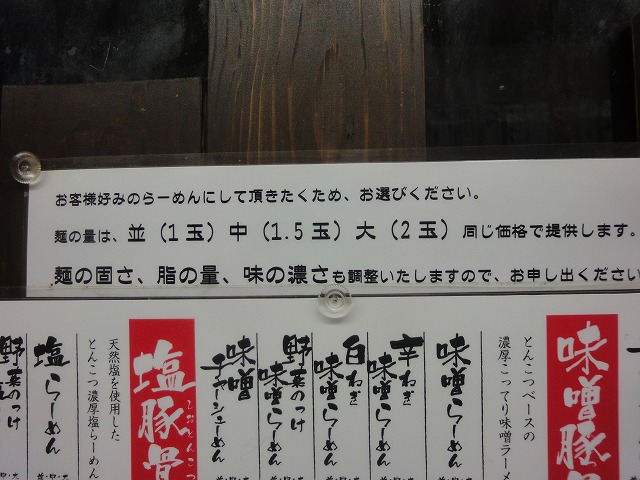 お客様好みのらーめんにして頂きたくため、お選びください。
麺の量は、並（1玉）中（1.5玉）大（2玉）同じ価格で提供します。
麺の固さ、脂の量、味の濃さも調整いたしますので、お申し出ください
味噌豚
とんこつベースの
濃厚こってり味噌ラーメ
味噌らーめん
辛ねぎ
味噌らーめん
白ねぎ
味噌らーめん
野菜のっけ
味噌らーめん
味噌
チャーシューめん
塩豚骨
しおとんこつ
天然塩を使用した
とんこつ濃厚塩らーめん
塩らーめん
野菜のっけ